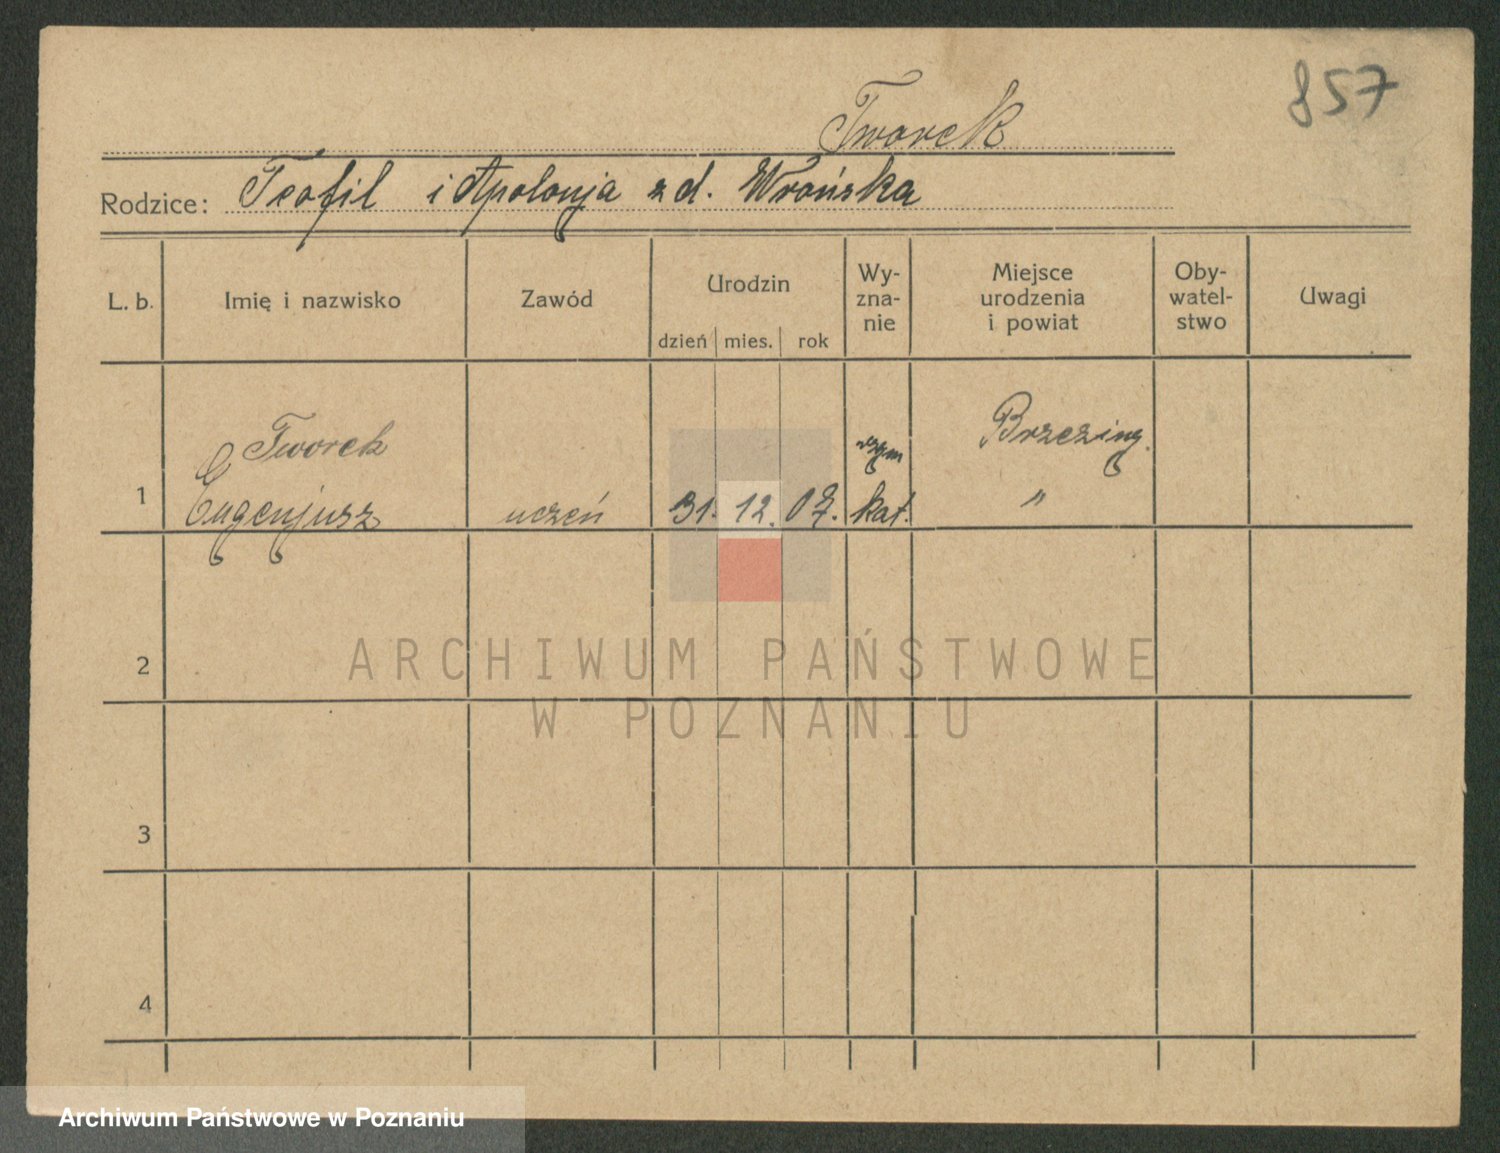 857
Tworek
Rodzice: Teofil i Apolonja z d. Wrońska
L. b. Imię i nazwisko Zawód Urodzin dzień mies. rok Wy-zna-nie Miejsce urodzenia i powiat Oby-watel-stwo Uwagi
Tworek rzym Brzeziny
1 Eugenjusz uczeń 31. 12. 07. kat. "
2
3
4
ARCHIWUM PAŃSTWOWE
W POZNANIU
Archiwum Państwowe w Poznaniu